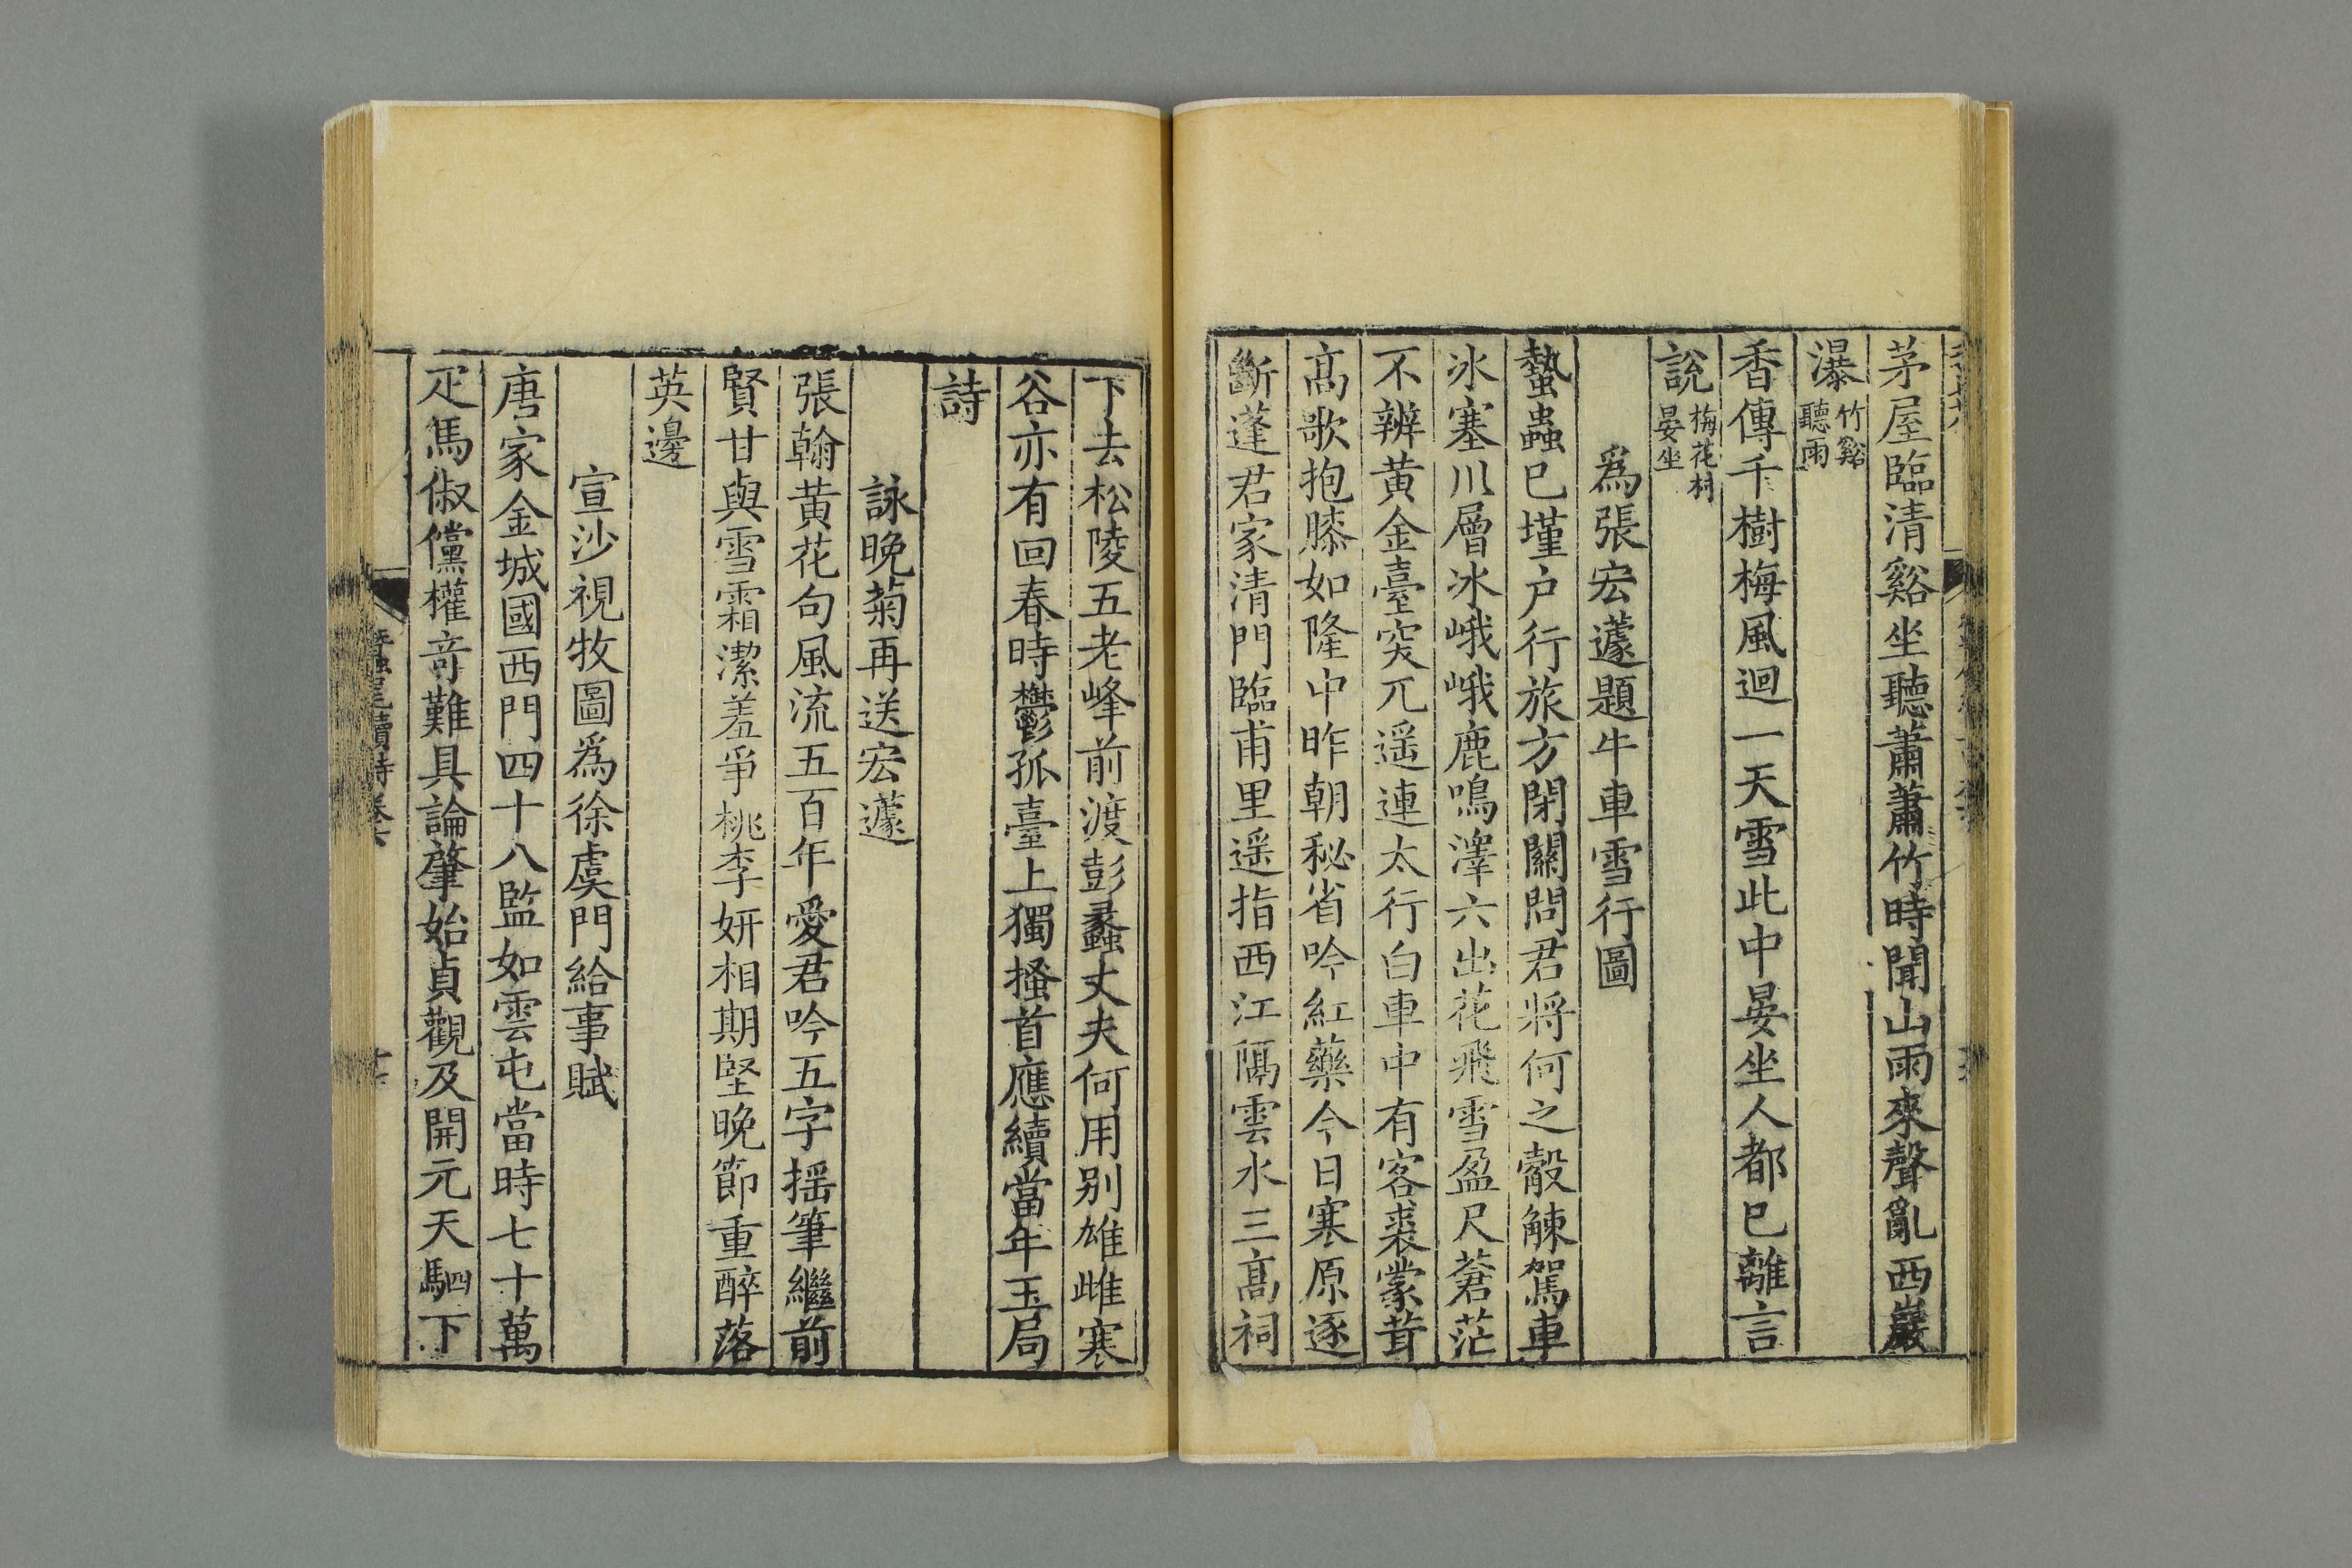 茅屋臨清谿坐聽蕭蕭竹時聞山雨來聲亂西巖
瀑竹谿聽雨
香傳千樹梅風迴一天雪此中晏坐人都已離言
說梅花村晏坐
爲張宏蘧題牛車雪行圖
蟄蟲已墐户行旅方閉關問君將何之觳觫駕車
冰塞川層冰峨峨鹿鳴澤六出花飛雪盈尺蒼茫
不辨黄金臺突兀遥連太行白車中有客裘蒙茸
高歌抱膝如隆中昨朝秘省吟紅藥今日寒原逐
斷蓬君家清門臨甫里遥指西江隔雲水三高祠
下去松陵五老峰前渡彭蠡丈夫何用别雄雌寒
谷亦有回春時鬱孤臺上獨搔首應續當年玉局
詩
詠晚菊再送宏蘧
張翰黄花句風流五百年愛君吟五字摇筆繼前
賢甘與雪霜潔羞爭桃李妍相期堅晚節重醉落
英邊
宣沙視牧圖爲徐虞門給事賦
唐家金城國西門四十八監如雲屯當時七十萬
疋馬俶儻權奇難具論肇始貞觀及開元天駟下
蠶尾續詩卷